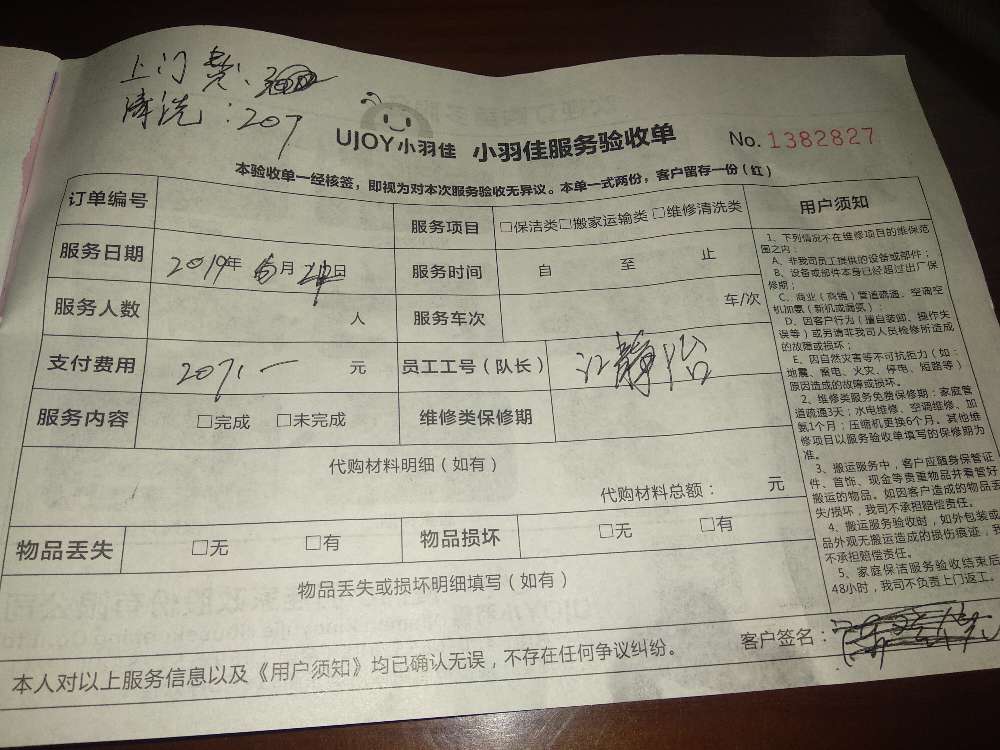 上门费:
清洗:207
UJOY小羽佳 小羽佳服务验收单 No. 1382827
本验收单一经核签，即视为对本次服务验收无异议。本单一式两份，客户留存一份（红）
订单编号 服务项目 □保洁类□搬家运输类 □维修清洗类
服务日期 2019年 月 日 服务时间 自 至 止
服务人数 人 服务车次 车/次
支付费用 207.- 元 员工工号（队长） 江静怡
服务内容 □完成 □未完成 维修类保修期
代购材料明细（如有）
代购材料总额： 元
物品丢失 □无 □有 物品损坏 □无 □有
物品丢失或损坏明细填写（如有）
本人对以上服务信息以及《用户须知》均已确认无误，不存在任何争议纠纷。 客户签名：
用户须知
1、下列情况不在维修项目的维保范
围之内：
A、非我司员工提供的设备或部件；
B、设备或部件本身已经超过出厂保
修期；
C、商业（商铺）管道疏通、空调空
机加氨（新机或漏氨）；
D、因客户行为（擅自装卸、操作失
误等）或另请非我司人员检修所造成
的故障或损坏；
E、因自然灾害等不可抗拒力（如：
地震、雷电、火灾、停电、短路等）
原因造成的故障或损坏。
2、维修类服务免费保修期：家庭管
道疏通3天；水电维修、空调维修、加
氨1个月；压缩机更换6个月。其他维
修项目以服务验收单填写的保修期为
准。
3、搬运服务中，客户应随身保管证
件、首饰、现金等贵重物品并看管好
搬运的物品。如因客户造成的物品丢
失/损坏，我司不承担赔偿责任。
4、搬运服务验收时，如外包装或
品外观无搬运造成的损伤痕迹，我
不承担赔偿责任。
5、家庭保洁服务验收结束后
48小时，我司不负责上门返工。